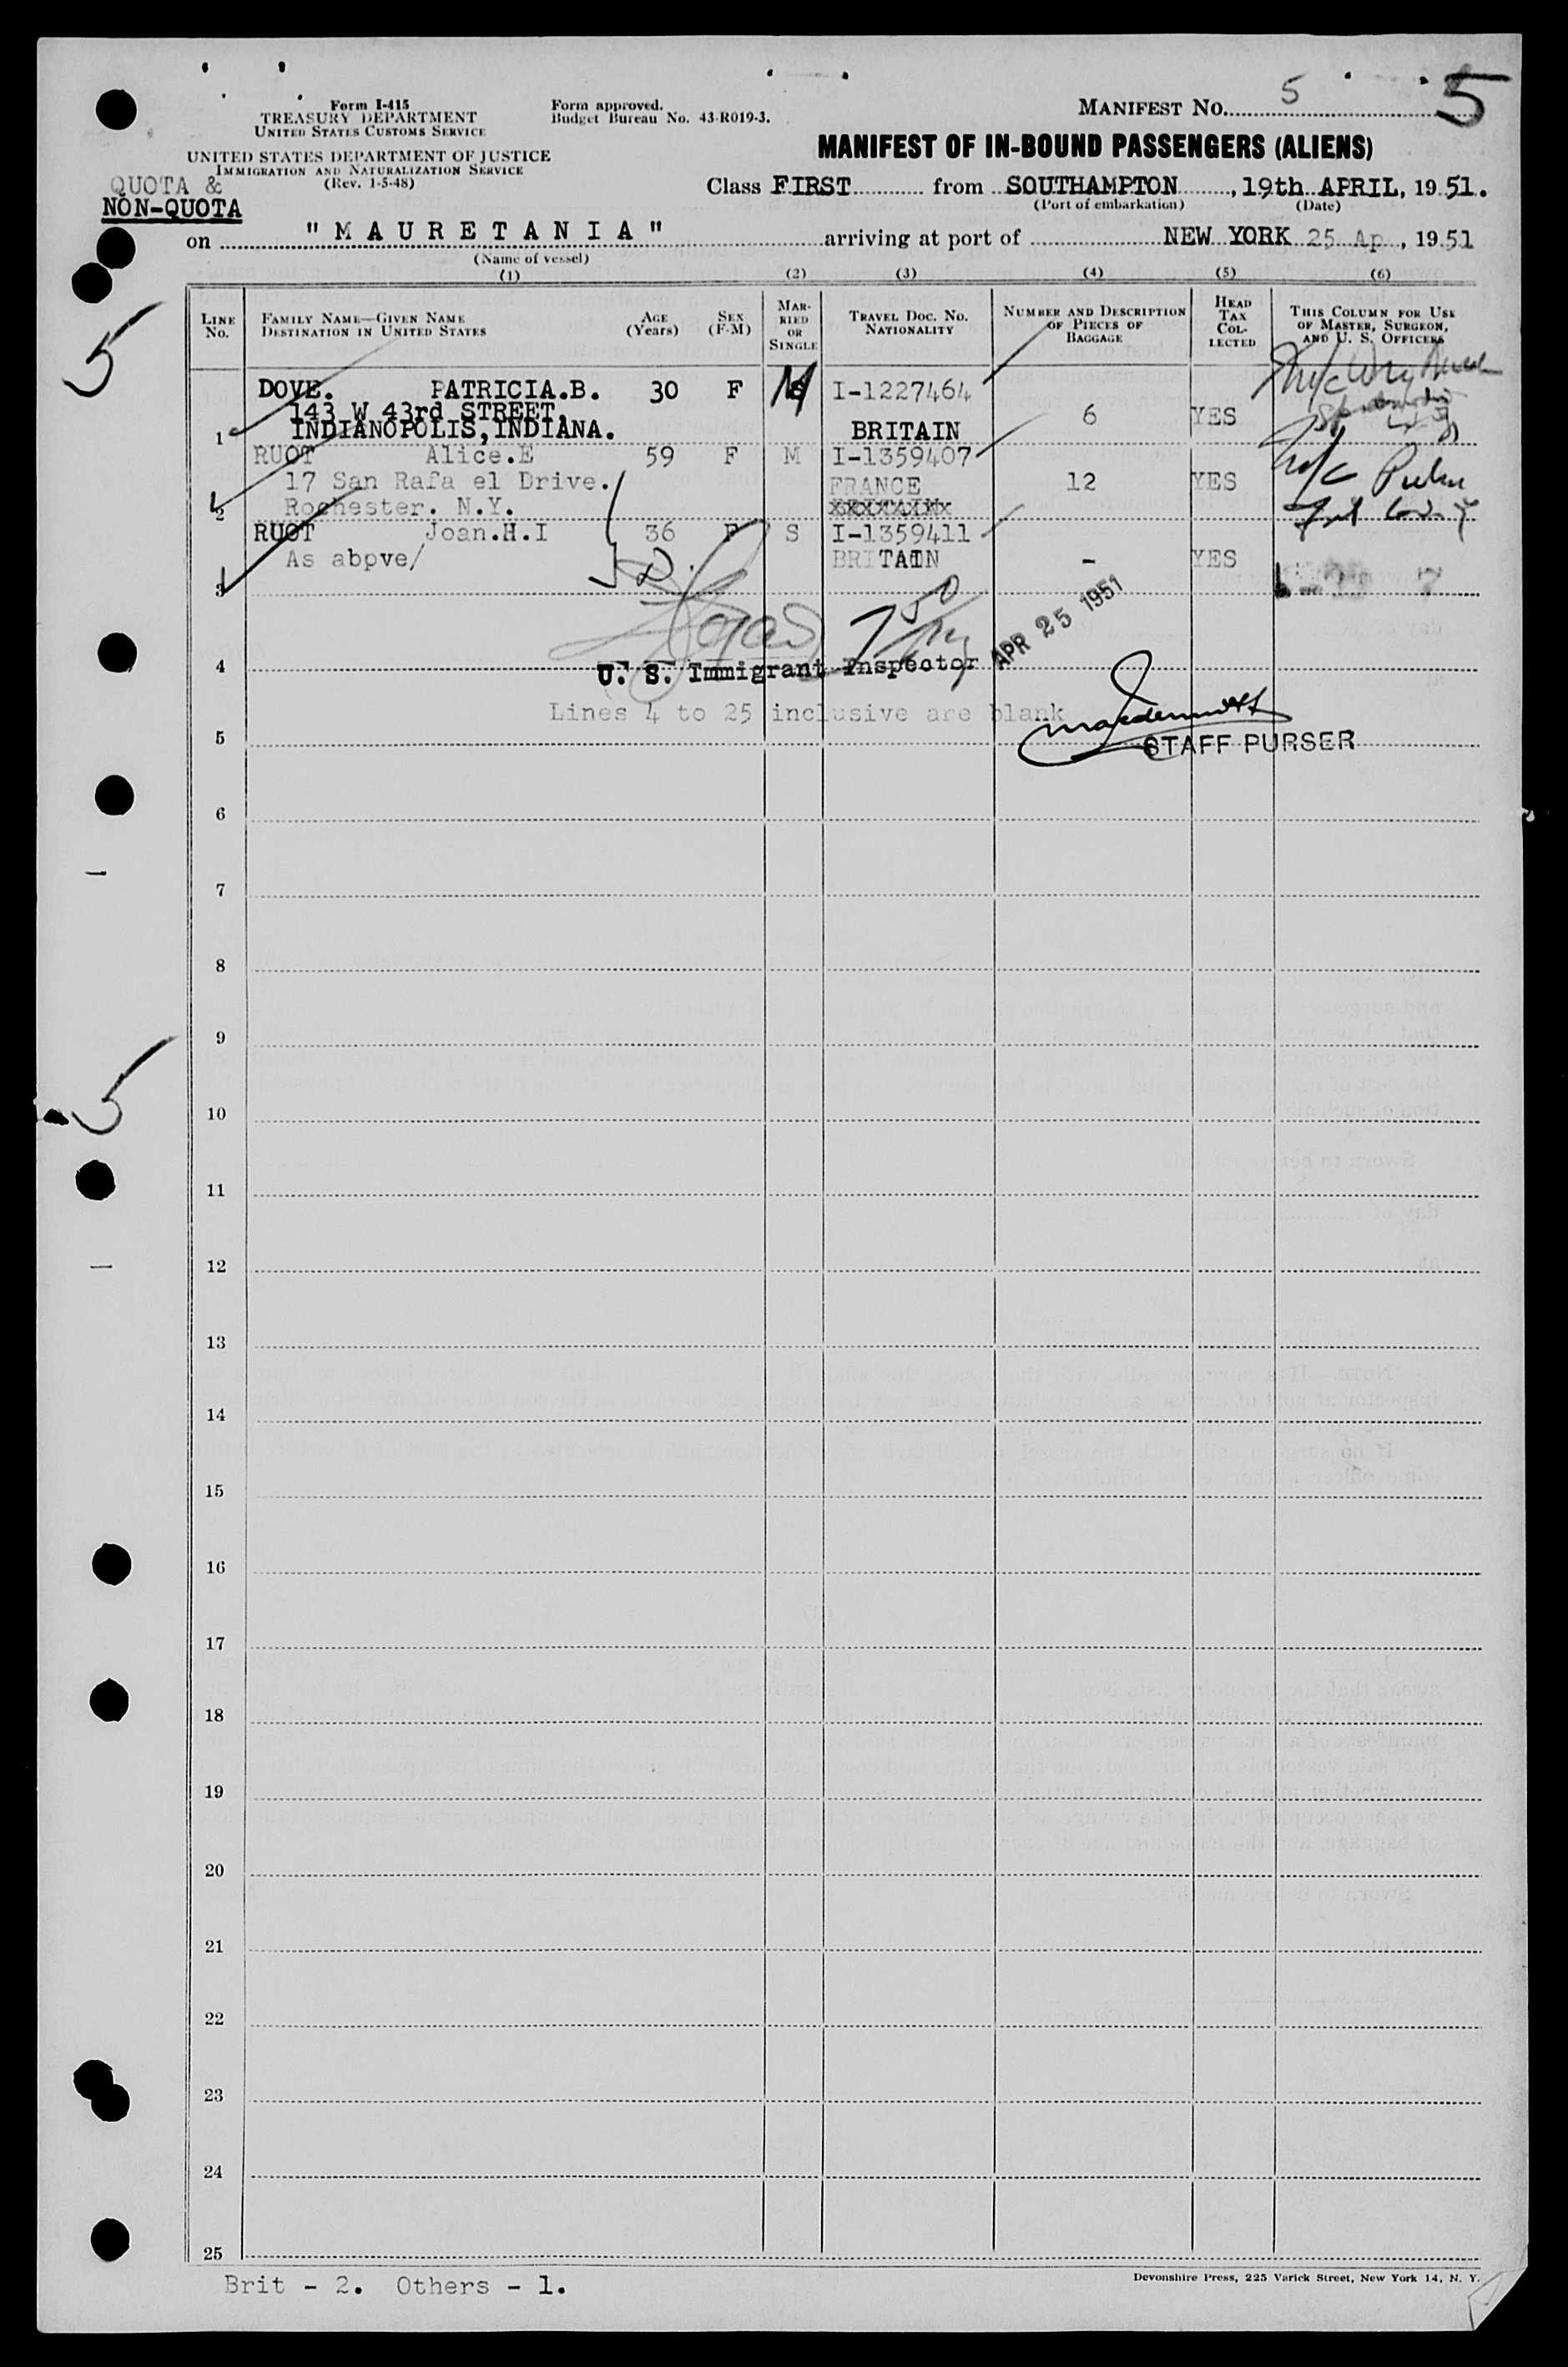 Form I-415
TREASURY DEPARTMENT
UNITED STATES CUSTOMS SERVICE
UNITED STATES DEPARTMENT OF JUSTICE
IMMIGRATION AND NATURALIZATION SERVICE
(Rev. 1-5-48)
Form approved.
Budget Bureau No. 43-R019-3.
MANIFEST NO. 5
5
MANIFEST OF IN-BOUND PASSENGERS (ALIENS)
QUOTA &
NON-QUOTA
Class FIRST from SOUTHAMPTON, 19th APRIL, 19 51.
(Port of embarkation) (Date)
on "MAURETANIA" arriving at port of NEW YORK 25 Ap, 19 51
(Name of vessel)
(1) (2) (3) (4) (5) (6)
LINE NO.
FAMILY NAME—GIVEN NAME
DESTINATION IN UNITED STATES
AGE (Years)
SEX (F-M)
MARRIED OR SINGLE
TRAVEL DOC. NO.
NATIONALITY
NUMBER AND DESCRIPTION OF PIECES OF BAGGAGE
HEAD TAX COLLECTED
THIS COLUMN FOR USE OF MASTER, SURGEON, AND U. S. OFFICERS
5
DOVE. PATRICIA.B. 30 F M I-1227464
143 W 43rd STREET, 6 YES
1 INDIANOPOLIS, INDIANA. BRITAIN
RUOT Alice.E 59 F M I-1359407
17 San Rafa el Drive. FRANCE 12 YES
2 Rochester. N.Y.
RUOT Joan.H.I 36 F S I-1359411
As abpve/ BRITAIN - YES
3
APR 25 1951
4 U. S. Immigrant Inspector
Lines 4 to 25 inclusive are blank
5 STAFF PURSER
6
7
8
9
5
10
11
12
13
14
15
16
17
18
19
20
21
22
23
24
25
Brit - 2. Others - 1.
Devonshire Press, 225 Varick Street, New York 14, N. Y.